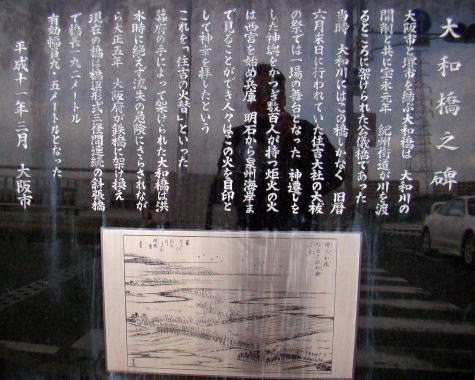 大和橋之碑
大阪市と堺市を結ぶ大和橋は 大和川の
開削と共に宝永元年 紀州街道が川を渡
るところに架けられた公儀橋であった
当時 大和川にはこの橋しかなく 旧暦
六月末日に行われていた住吉大社の大祓
の祭では一場の舞台となった 神遷しを
した神輿をかつぎ数百人が持つ炬火の火
は西宮を始め兵庫 明石から泉州海岸ま
で見ることができ人々はこの火を目印と
して神幸を拝したという
これを「住吉の火替」といった
幕府の手によって架けられた大和橋は洪
水時の絶えず流失の危険にさらされたが
ら大正五年 大阪府が鉄橋に架け換え
現在の橋は橋梁形式三径間連続の斜張橋
で橋長一九二メートル
有効幅員九・五メートルとなった
平成十一年三月 大阪市